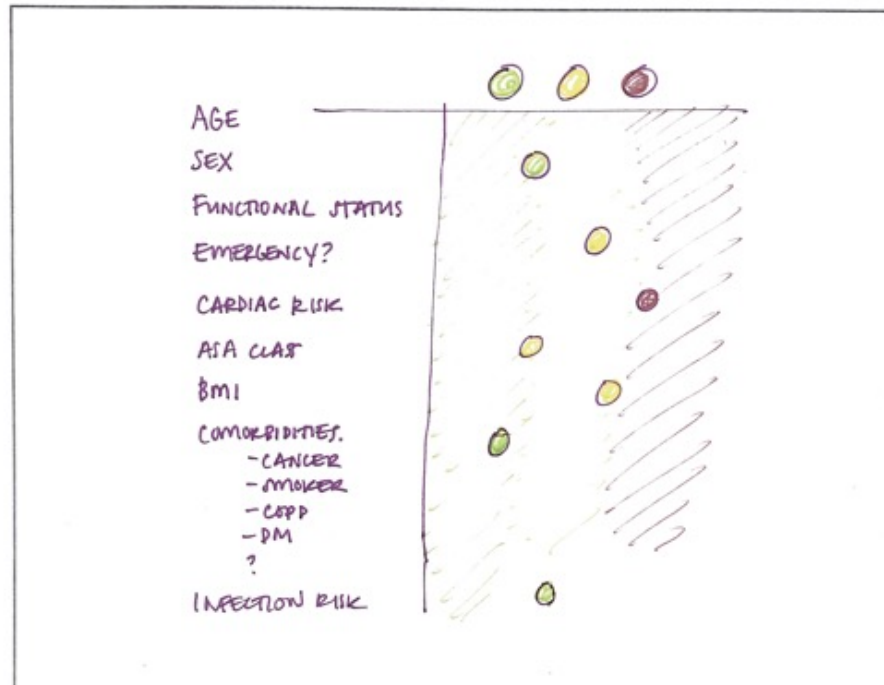 AGE
SEX
FUNCTIONAL STATUS
EMERGENCY?
CARDIAC RISK
ASA CLASS
BMI
COMORBIDITIES.
- CANCER
- SMOKER
- COPD
- DM
?
INFECTION RISK